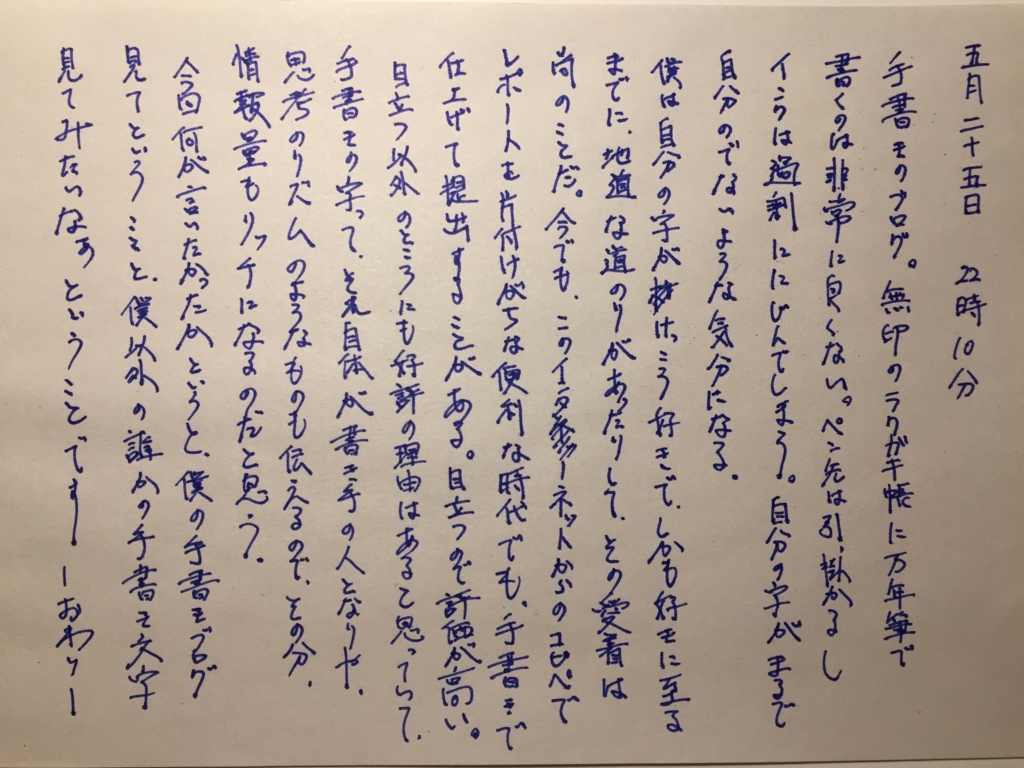 五月二十五日　22時10分
手書きのブログ。無印のラクガキ帳に万年筆で
書くのは非常に良くない。ペン先は引っ掛かるし
インクは過剰ににじんでしまう。自分の字がまるで
自分のでないような気分になる。
僕は自分の字がけっこう好きで、しかも好きに至る
までに、地道な道のりがあったりして、その愛着は
尚のことだ。今でも、このインターネットからのコピペで
レポートを片付けがちな便利な時代でも、手書きで
仕上げて提出することがある。目立つので評価が高い。
目立つ以外のところにも好評の理由はあると思っていて、
手書きの字って、それ自体が書き手の人となりや、
思考のリズムのようなものも伝えるので、その分、
情報量もリッチになるのだと思う。
今回何が言いたかったかというと、僕の手書きブログ
見てということと、僕以外の誰かの手書き文字
見てみたいなぁということです。ーおわりー